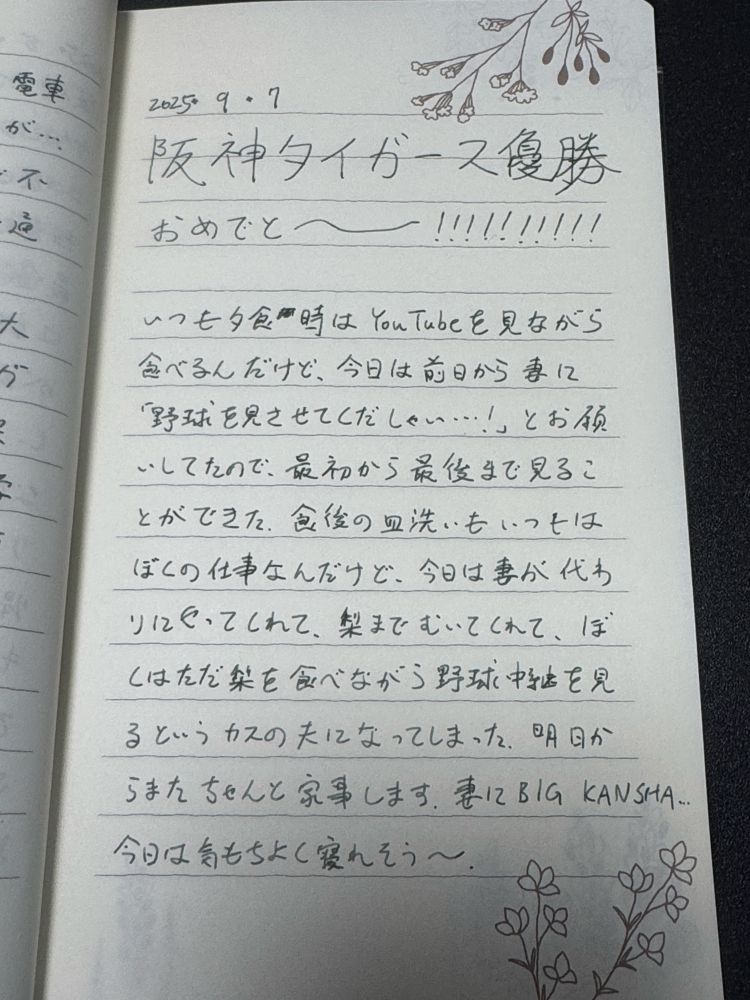 電車
が…
不
大
が
2025. 9. 7
阪神タイガース優勝
おめでと〜!!!!!!!!!!
いつも夕食時は YouTubeを見ながら
食べるんだけど、今日は前日から妻に
「野球を見させてくだしゃい…!」とお願
いしてたので、最初から最後まで見るこ
とができた。食後の皿洗いもいつもは
ぼくの仕事なんだけど、今日は妻が代わ
りにやってくれて、梨までむいてくれて、ぼ
くはただ梨を食べながら野球中継を見
るというカスの夫になってしまった。明日か
らまたちゃんと家事します。妻にBIG KANSHA…
今日は気もちよく寝れそう〜。